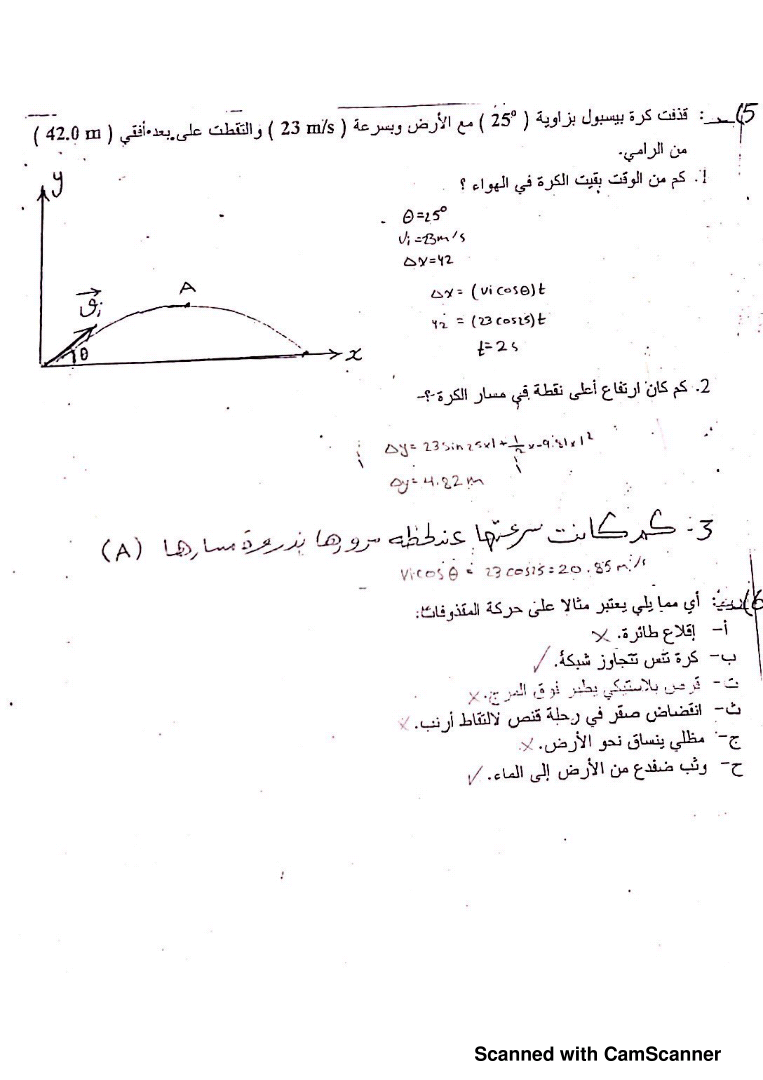 5) : قذفت كرة بيسبول بزاوية ( 25° ) مع الأرض وبسرعة ( 23 m/s ) والتقطت على بعد أفقي ( 42.0 m )
من الرامي.
1. كم من الوقت بقيت الكرة في الهواء ؟
θ=25°
Vi=23m/s
Δx=42
Δx = (Vi cosθ)t
42 = (23 cos25)t
t=2s
y
A
θ
x
2. كم كان ارتفاع أعلى نقطة في مسار الكرة ؟
Δy= 23sin25x1+½x-9.81x1²
Δy= 4.82m
3- كم كانت سرعتها عند لحظه مرورها بذروة مسارها (A)
Vicosθ = 23cos25=20.85m/s
6) : أي مما يلي يعتبر مثالا على حركة المقذوفات:
أ- إقلاع طائرة. ×
ب- كرة تنس تتجاوز شبكة. ✓
ت- قرص بلاستيكي يطير فوق المرج. ×
ث- انقضاض صقر في رحلة قنص لالتقاط أرنب. ×
ج- مظلي ينساق نحو الأرض. ×
ح- وثب ضفدع من الأرض إلى الماء. ✓
Scanned with CamScanner